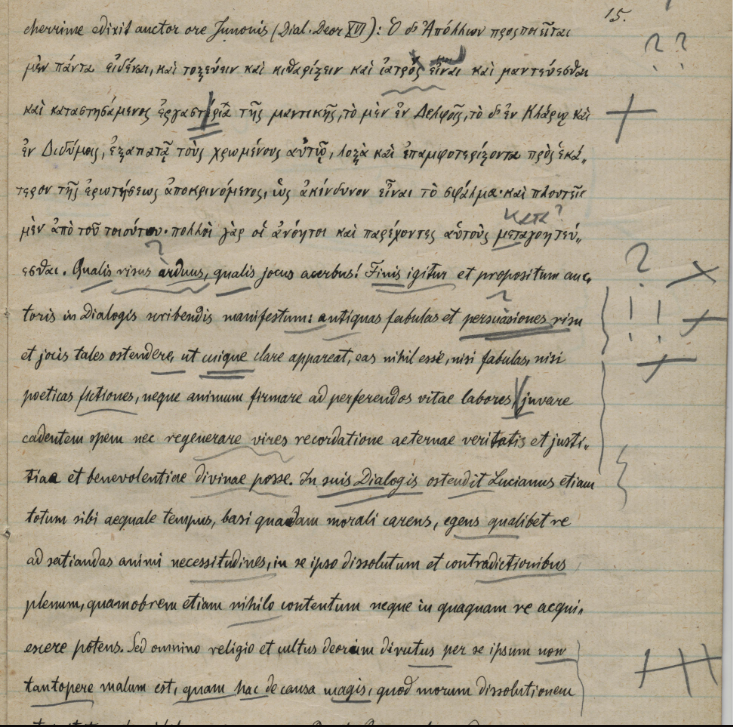 15.
cherrime edixit auctor ore Junonis (Dial. Deor XVI): Ὁ δ' Ἀπόλλων προςποιεῖται
μὲν πάντα εἰδέναι, καὶ τοξεύειν καὶ κιθαρίζειν καὶ ἰατρὸς εἶναι καὶ μαντεύεσθαι
καὶ καταστησάμενος ἐργαστήρια τῆς μαντικῆς, τὸ μὲν ἐν Δελφοῖς, τὸ δ' ἐν Κλάρῳ καὶ
ἐν Διδύμοις, ἐξαπατᾷ τοὺς χρωμένους αὐτῷ, λοξὰ καὶ ἐπαμφοτερίζοντα πρὸς ἑκά-
τερον τῆς ἐρωτήσεως ἀποκρινόμενος, ὡς ἀκίνδυνον εἶναι τὸ σφάλμα· καὶ πλουτεῖς
κατα?
μὲν ἀπὸ τοῦ τοιούτου· πολλοὶ γὰρ οἱ ἀνόητοι καὶ παρέχοντες αὑτοὺς μεταγοητεύ-
εσθαι. Qualis risus arduus, qualis jocus acerbus! Finis igitur et propositum auc-
toris in Dialogis scribendis manifestum: antiquas fabulas et persuasiones risu
et jocis tales ostendere, ut cuique clare appareat, eas nihil esse, nisi fabulas, nisi
poeticas fictiones, neque animum firmare ad perferendos vitae labores, juvare
cadentem opem nec regenerare vires recordatione aeternae veritatis et justi-
tiae et benevolentiae divinae posse. In suis Dialogis ostendit Lucianus etiam
totum sibi aequale tempus, basi quadam morali carens, egens qualibet re
ad satiandas animi necessitudines, in se ipso dissolutum et contradictionibus
plenum, quamobrem etiam nihilo contentum neque in quaquam re acqui-
escere potens. Sed omnino religio et cultus deorum dirutus per se ipsum non
tantopere malum est, quam hac de causa magis, quod morum dissolutionem